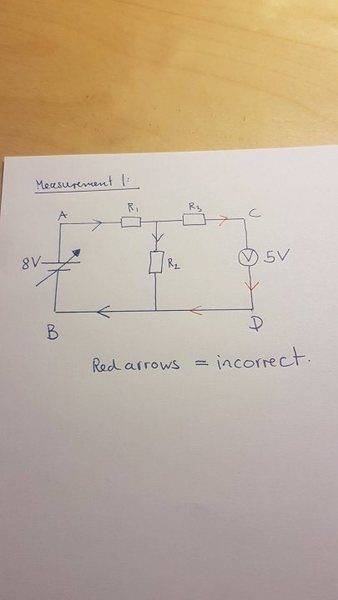 Measurement 1:
A R1 R3 C
8V R2 V 5V
B D
Red arrows = incorrect.